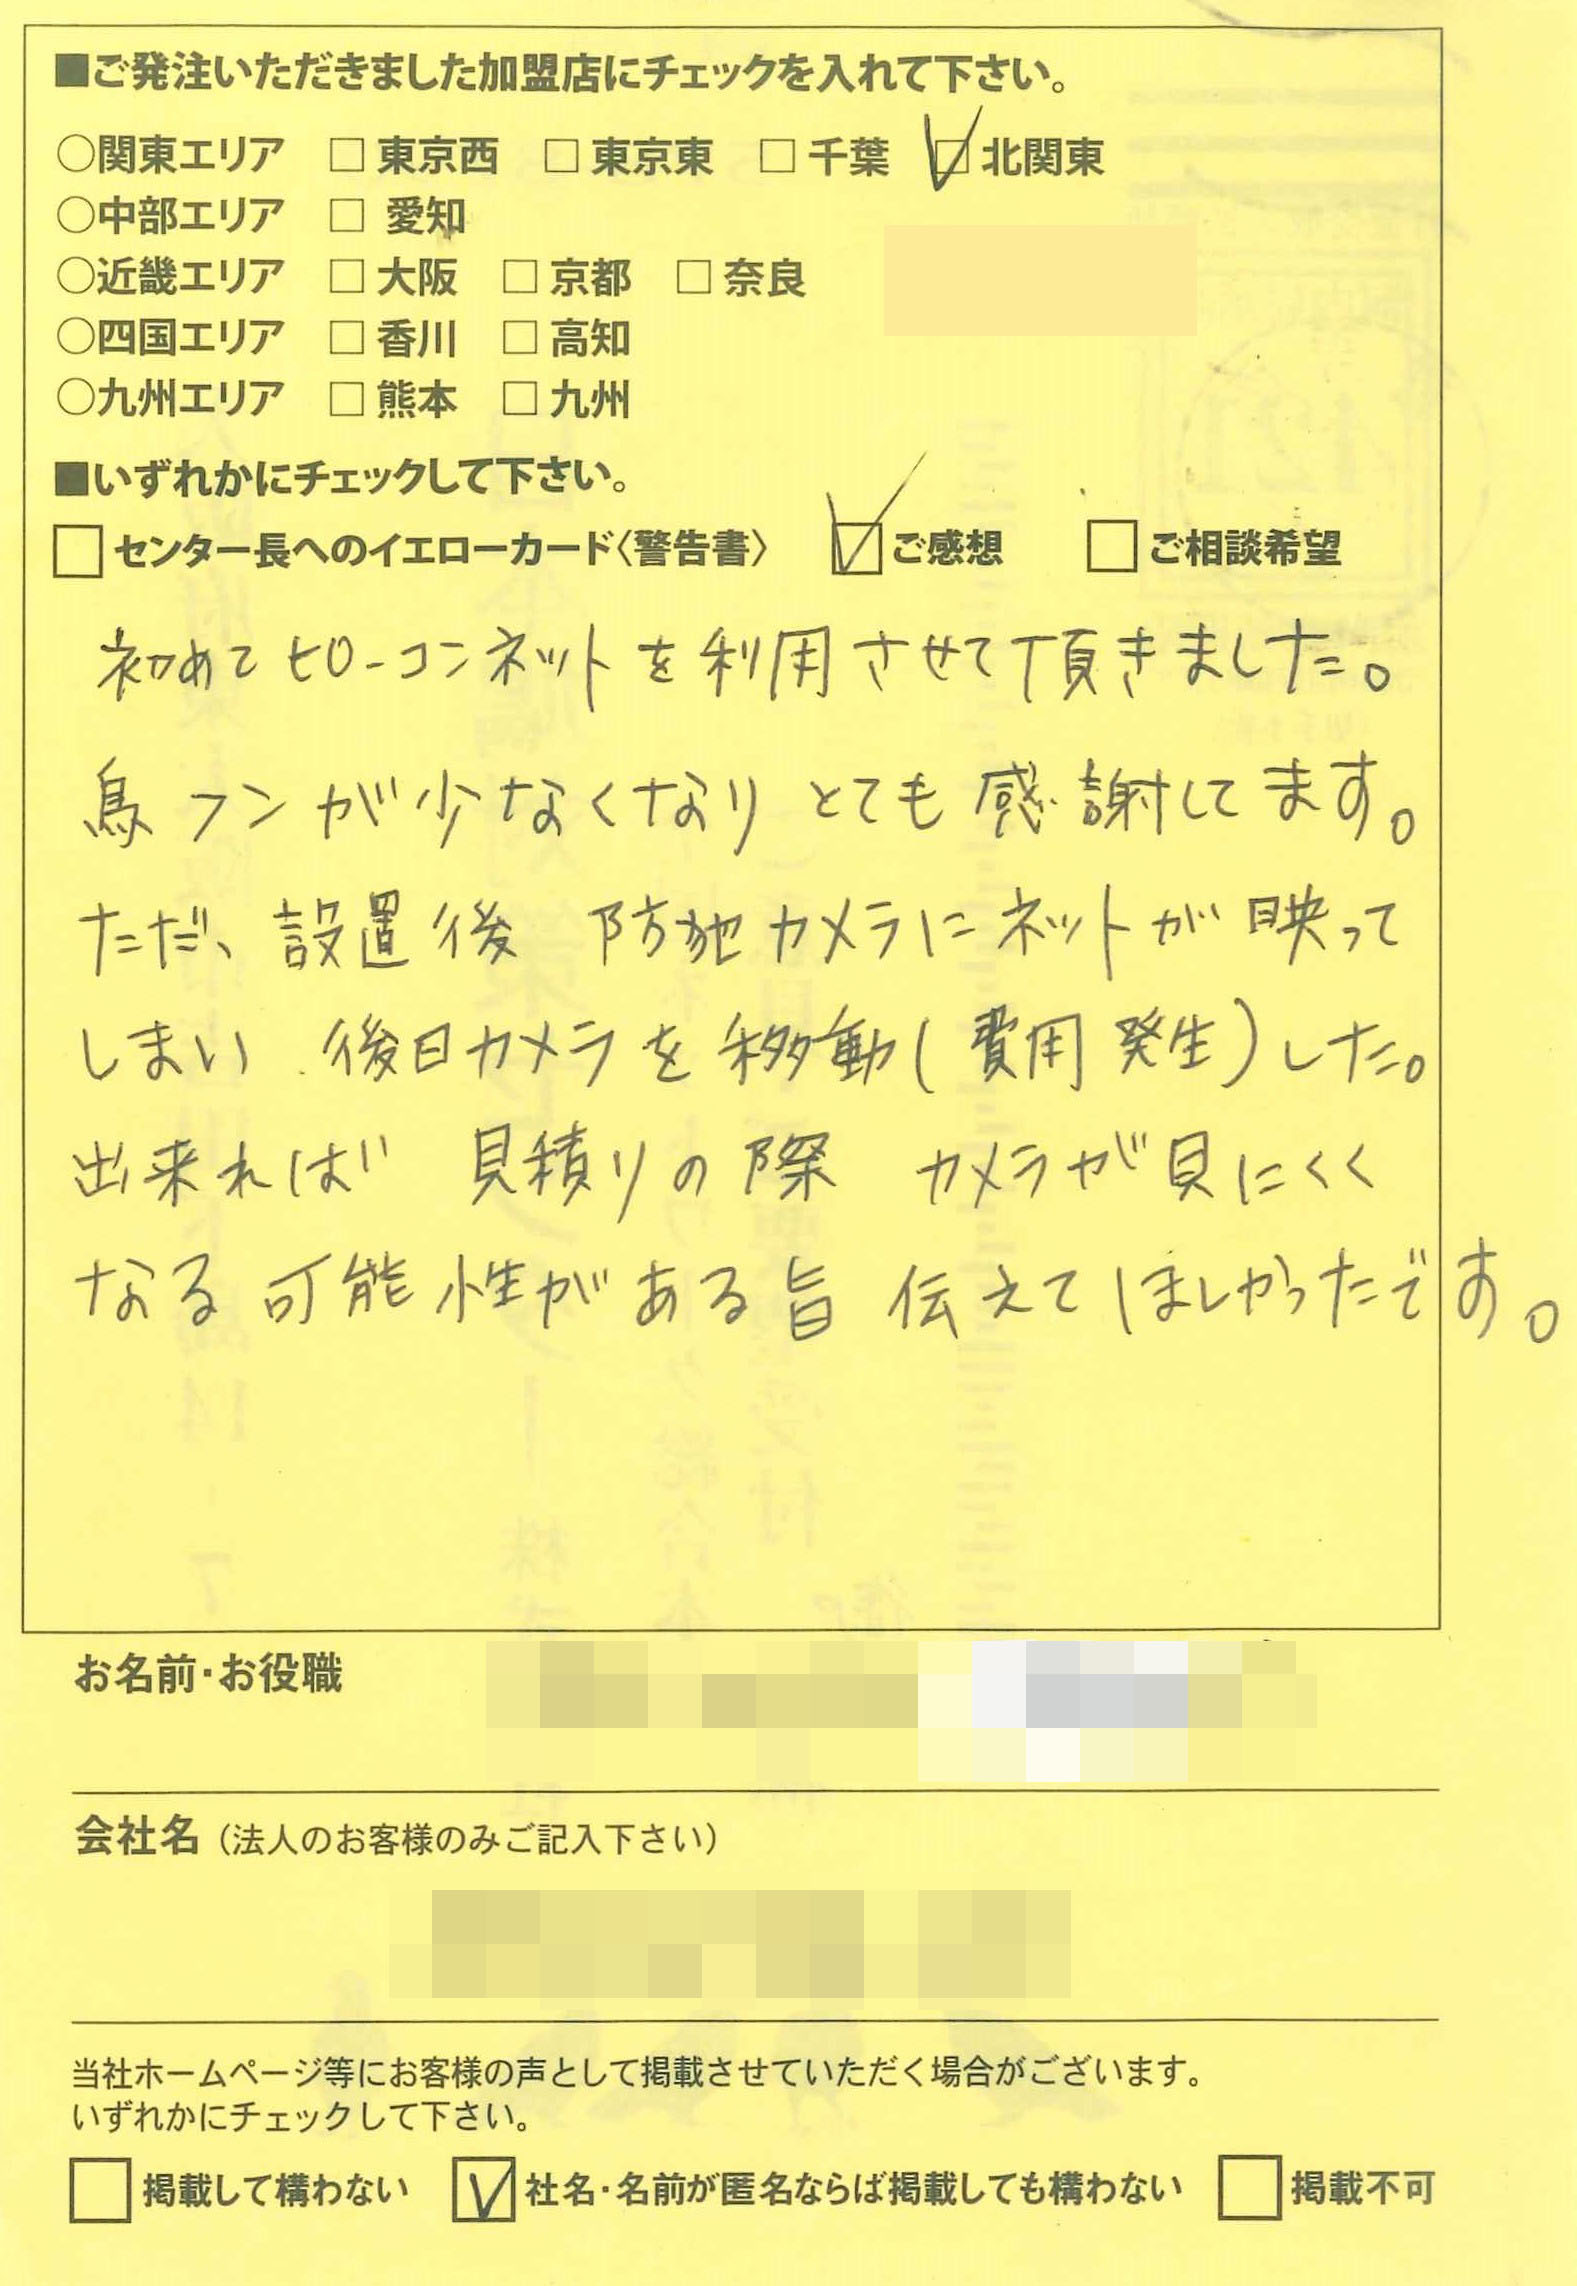 ■ご発注いただきました加盟店にチェックを入れて下さい。
○関東エリア □ 東京西 □ 東京東 □ 千葉 ☑ 北関東
○中部エリア □ 愛知
○近畿エリア □ 大阪 □ 京都 □ 奈良
○四国エリア □ 香川 □ 高知
○九州エリア □ 熊本 □ 九州
■いずれかにチェックして下さい。
□ センター長へのイエローカード〈警告書〉 ☑ ご感想 □ ご相談希望
初めてピローコンネットを利用させて頂きました。
鳥フンが少なくなりとても感謝してます。
ただ、設置後 防犯カメラにネットが映って
しまい 後日カメラを移動(費用発生)した。
出来れば 見積りの際 カメラが見にくく
なる可能性がある旨 伝えてほしかったです。
お名前・お役職
会社名（法人のお客様のみご記入下さい）
当社ホームページ等にお客様の声として掲載させていただく場合がございます。
いずれかにチェックして下さい。
□ 掲載して構わない ☑ 社名・名前が匿名ならば掲載しても構わない □ 掲載不可